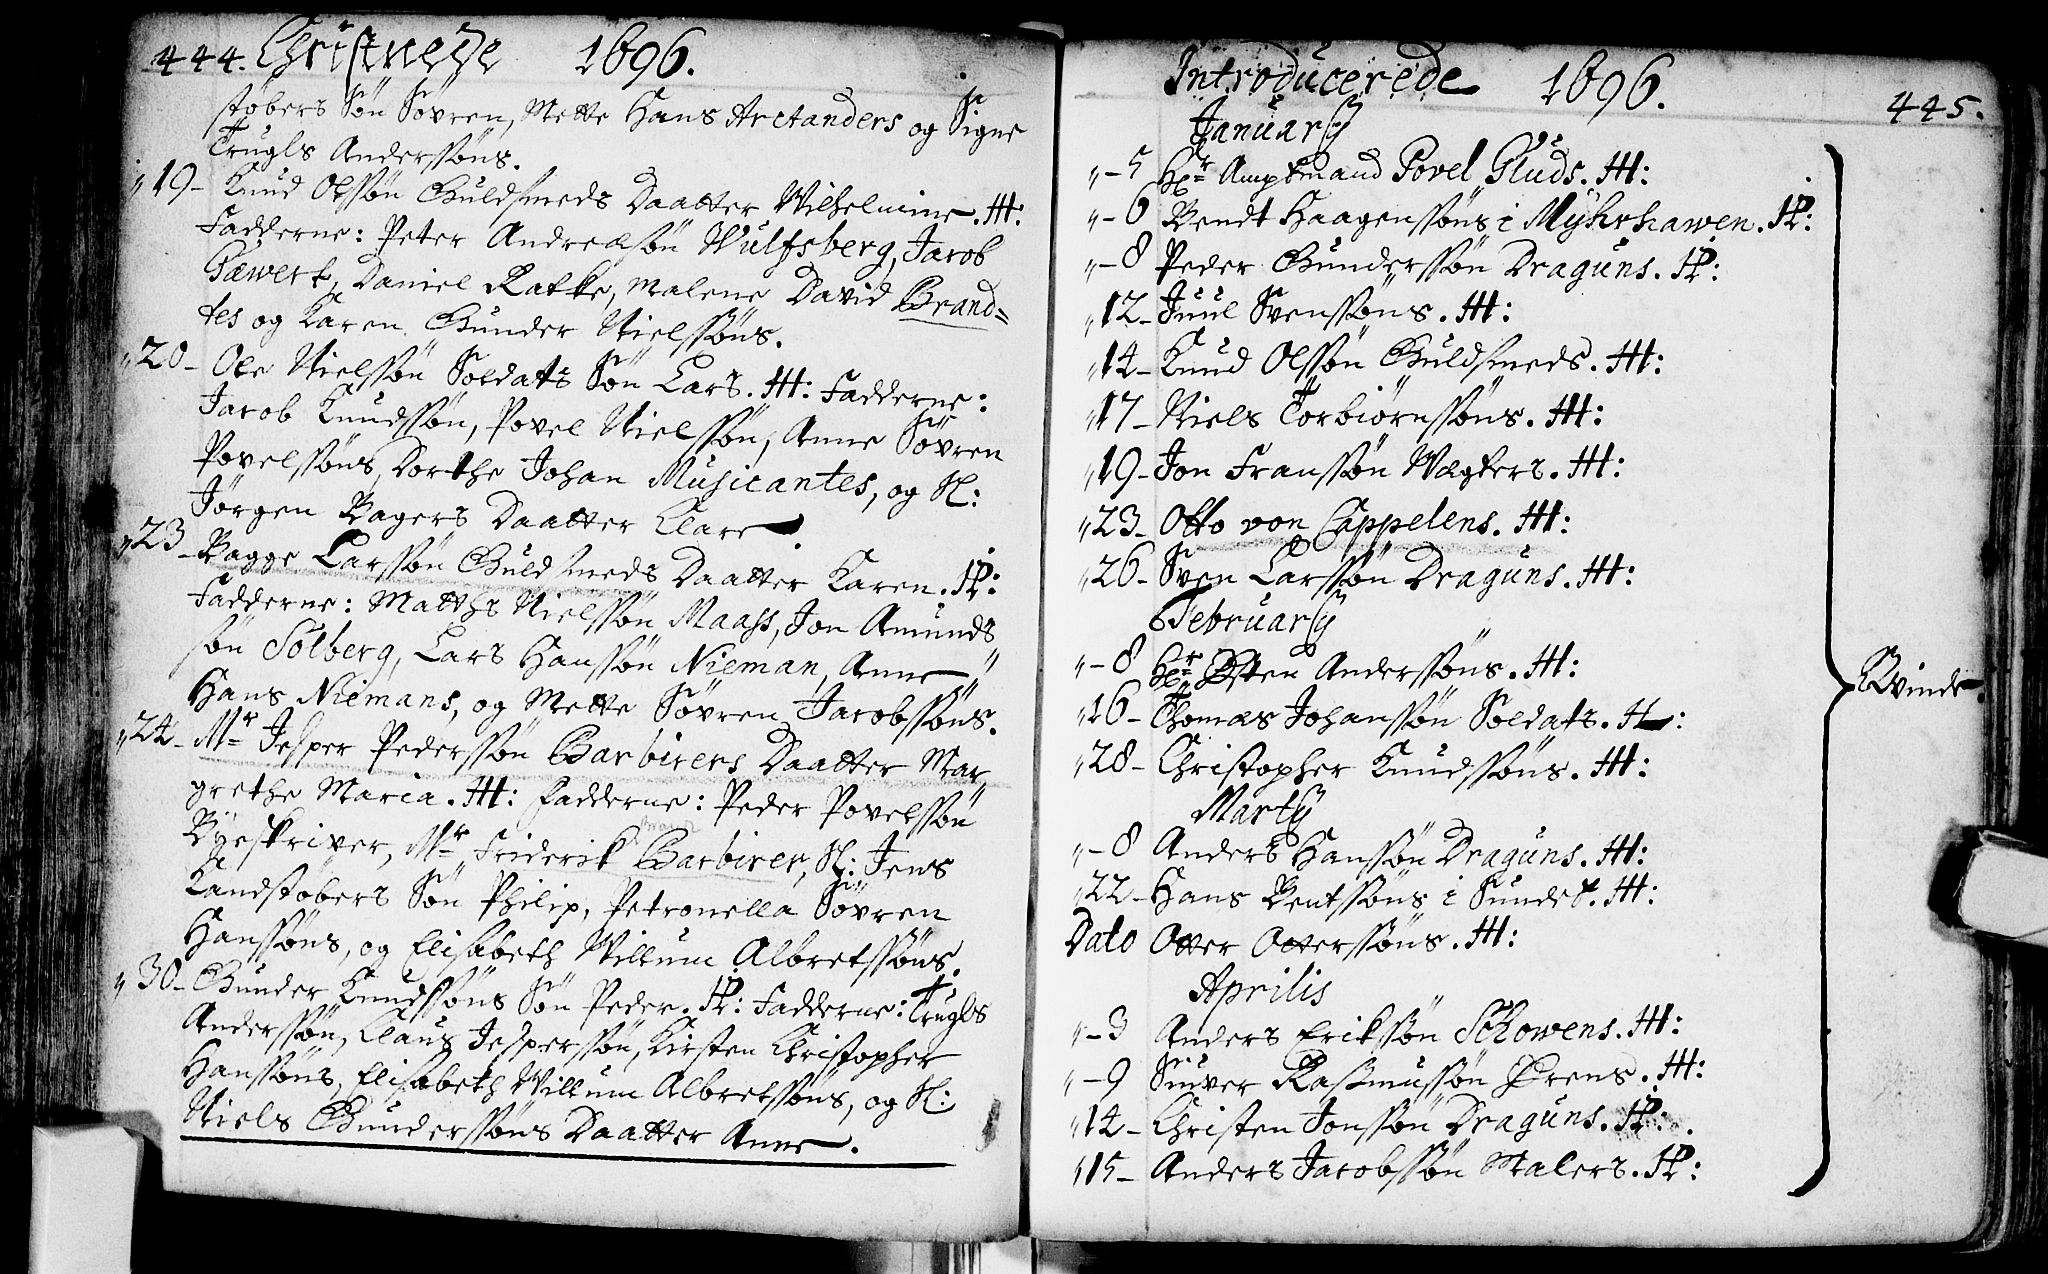 444. Christnede 1696.
støbers Søn Søvren, Mette Hans Arctanders og Signe
Trugls Anderssøns.
19 - Knud Olssøn Guldsmeds Daatter Wilhelmine. H:
Fadderne: Peter Andreæsøn Wulfsberg, Jacob
Gæwert, Daniel Ratke, Malene David Brand=
tes og Karen Gunder Nielssøns.
20 - Ole Nielssøn Soldats Søn Lars. H: Fadderne:
Jacob Knudssøn, Povel Nielssøn, Anne Søvren
Povelssøns, Dorthe Johan Musicantes, og Sl:
Jørgen Bagers Daatter Clare.
23 - Bagge Larssøn Guldsmeds Daatter Karen. P:
Fadderne: Matths Nielssøn Maass, Jon Amunds
søn Solberg, Lars Hanssøn Nieman, Anne
Hans Niemans, og Mette Søvren Jacobssøns.
24 - Mr Jesper Pederssøn Barbirers Daatter Mar
grethe Maria. H: Fadderne: Peder Povelssøn
Byeskriver, Mr Friderik Barbirer, Sl: Jens
Kandstøbers Søn Philip, Petronella Søvren
Hanssøns, og Elisabeth Willum Albretssøns.
30 - Gunder Knudssøns Søn Peder. P: Fadderne: Trugls
Anderssøn, Claus Jesperssøn, Kirsten Christopher
Hanssøns, Elisabeth Willum Albretssøns, og Sl:
Niels Gunderssøns Daatter Anne.
Introducerede 1696. 445.
January
- 5 Hr Amptmand Povel Gluds. H:
- 6 Bendt Haagenssøns i Myhrhawen. P:
- 8 Peder Gunderssøn Draguns. P:
12 - Juul Svenssøns. H:
14 - Knud Olssøn Guldsmeds. H:
17 - Niels Torbiørnssøns. H:
19 - Jon Franssøn Vægters. H:
23 - Otto von Cappelens. H:
26 - Sven Larssøn Draguns. H:
February
- 8 Hr Østen Anderssøns. H:
16 - Thomas Johanssøn Soldats. H:
28 - Christopher Knudssøns. H:
Kvinder.
Marty
- 8 Anders Hanssøn Draguns. H:
22 - Hans Bentssøns i Sundet. H:
Dato Otter Otterssøns. H:
Aprilis
- 3 Anders Erikssøn Schowens. H:
- 9 Siuver Rasmussøn Ørens. H:
14 - Christen Jonssøn Draguns. P:
15 - Anders Jacobssøn Malers. P: